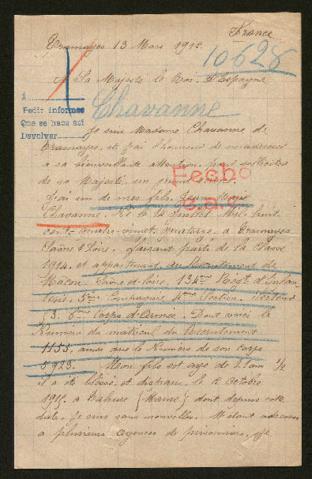 France
Tramayes 13 Mars 1915.
10628
A Sa Majesté le Roi d'Espagne
Pedir informes
Que se hace así
Devolver
Chavanne
Je suis Madame Chavanne de
Tramayes, et j'ai l'honneur de
a sa bienveillante attention, pour
de Sa Majesté, un
Fecho
J'ai un de mes fils, Jean Marie
Chavanne. Né le Juillet Mil huit
cent quatre-vingt quatorze a Tramayes
Saône & Loire, faisant partie de la Classe
1914, et appartenant au Recrutement de
Macon, Saône-et-Loire, 134me Régt d'Infan
terie, 5me Compagnie 4me Section, Secteur
§3. Corps d'Armée. Dont voici le
Numéro de matricul du Recrutement
1155. ainsi que le Numéro de son corps
5923. Mon fils est agé de 1/2
il a été blessé, et disparu, le 12 Octobre
1915, a Tahure (Marne) dont depuis cette
date. Je suis sans nouvelles. M'étant adressée
a plusieurs agences de prisonniers, je